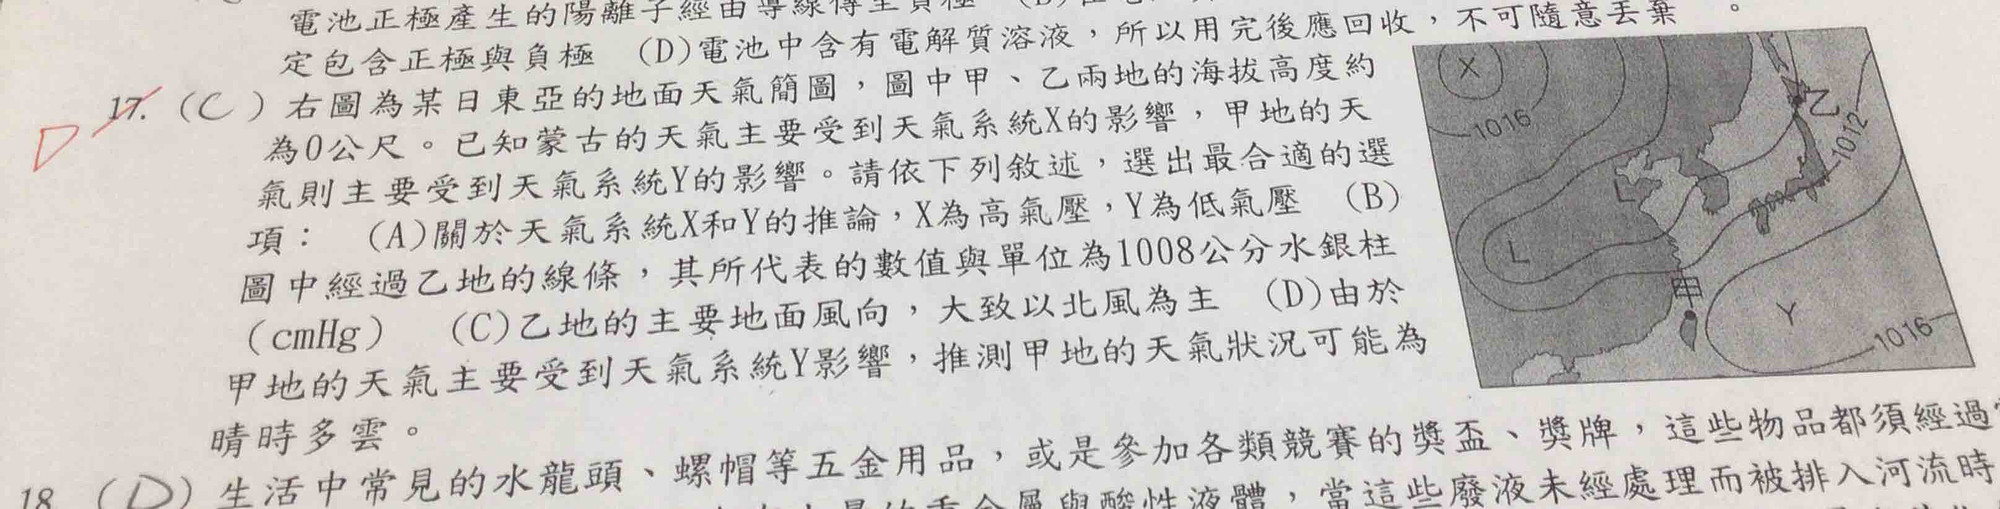 電池正極產生的陽離子經由導線傳至負極
定包含正極與負極 (D)電池中含有電解質溶液，所以用完後應回收，不可隨意丟棄。
D 17. (C) 右圖為某日東亞的地面天氣簡圖，圖中甲、乙兩地的海拔高度約
為0公尺。已知蒙古的天氣主要受到天氣系統X的影響，甲地的天
氣則主要受到天氣系統Y的影響。請依下列敘述，選出最合適的選
項： (A)關於天氣系統X和Y的推論，X為高氣壓，Y為低氣壓 (B)
圖中經過乙地的線條，其所代表的數值與單位為1008公分水銀柱
(cmHg) (C)乙地的主要地面風向，大致以北風為主 (D)由於
甲地的天氣主要受到天氣系統Y影響，推測甲地的天氣狀況可能為
晴時多雲。
X
1016
乙
1012
L
L
甲
Y
1016
18. (D) 生活中常見的水龍頭、螺帽等五金用品，或是參加各類競賽的獎盃、獎牌，這些物品都須經過
重金屬與酸性液體，當這些廢液未經處理而被排入河流時